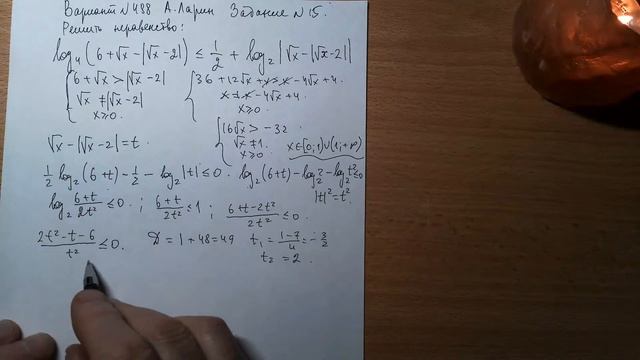 Вариант №498 А. Ларин Задание №15.
Решить неравенство:
log₄(6+√x-|√x-2|) ≤ 1/2 + log₂|√x-|√x-2||
{ 6+√x > |√x-2| { 36+12√x+x>x-4√x+4.
√x ≠ |√x-2| x≠x-4√x+4
x≥0. x≥0
√x-|√x-2|=t. { 16√x > -32
√x ≠ 1.
x≥0 x∈[0;1)∪(1;+∞)
1/2 log₂(6+t) - 1/2 - log₂|t| ≤ 0. log₂(6+t)-log₂2-log₂t²≤0
log₂ (6+t)/(2t²) ≤ 0. ; (6+t)/(2t²) ≤ 1 ; (6+t-2t²)/(2t²) ≤ 0. |t|²=t².
(2t²-t-6)/t² ≤ 0. D=1+48=49 t₁=(1-7)/4=-3/2
t₂=2.